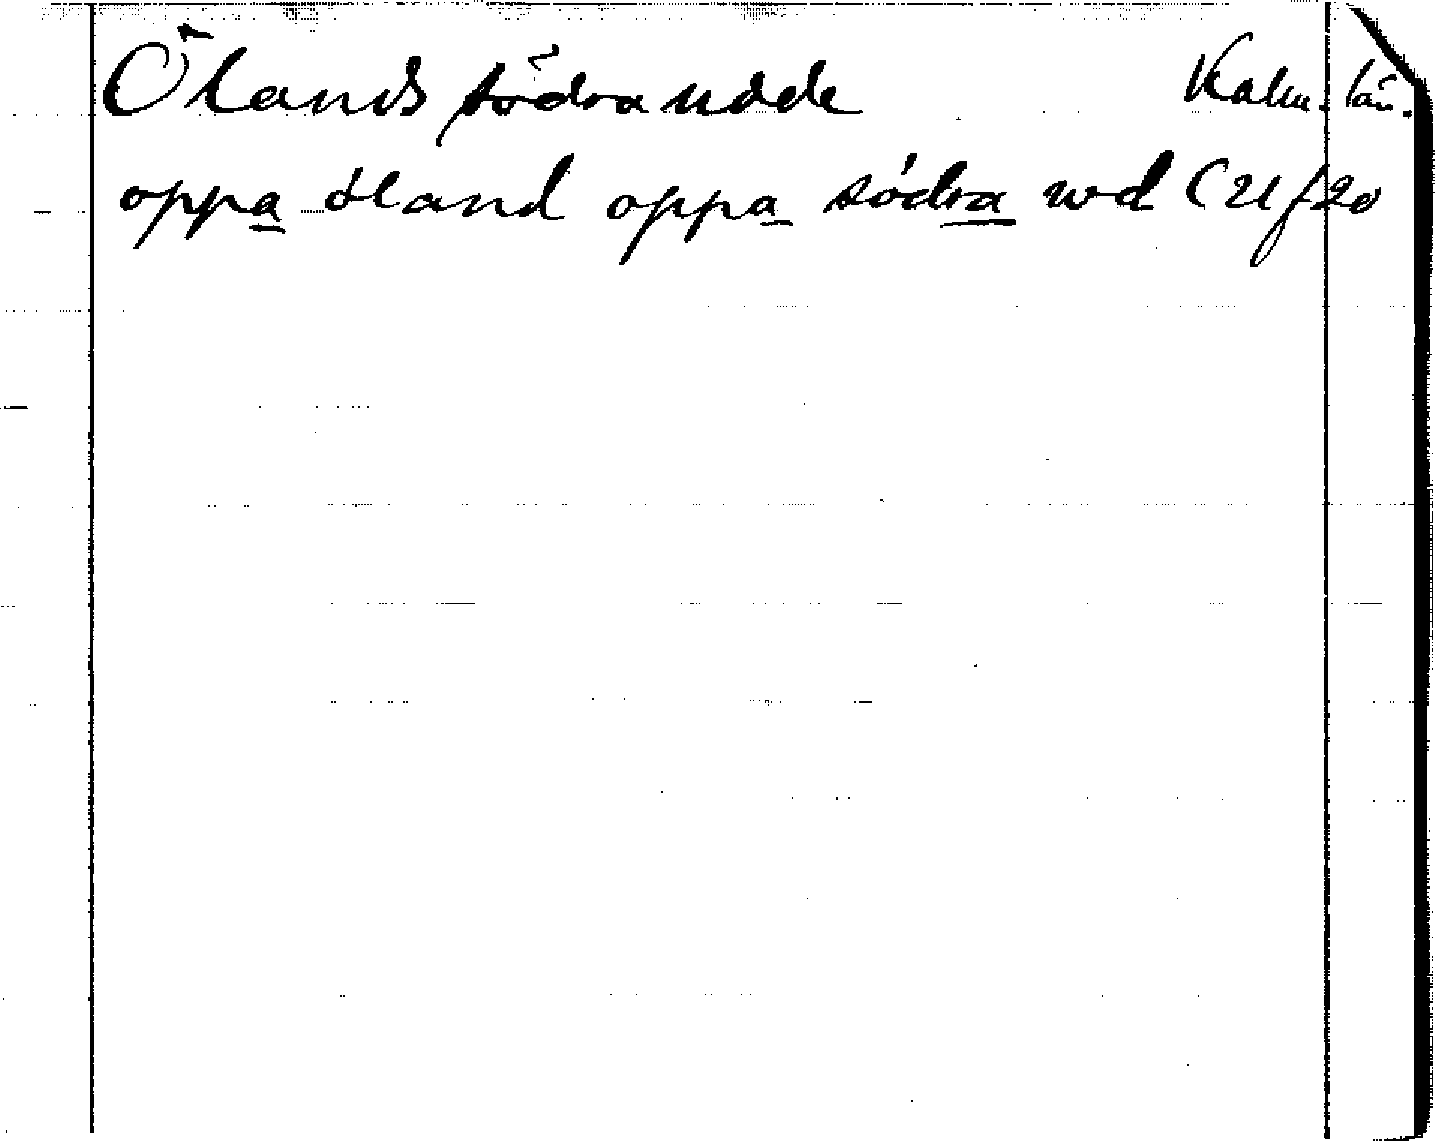 Ölands södra udde Kalm. län.
oppa öland oppa södra udd (U f 20